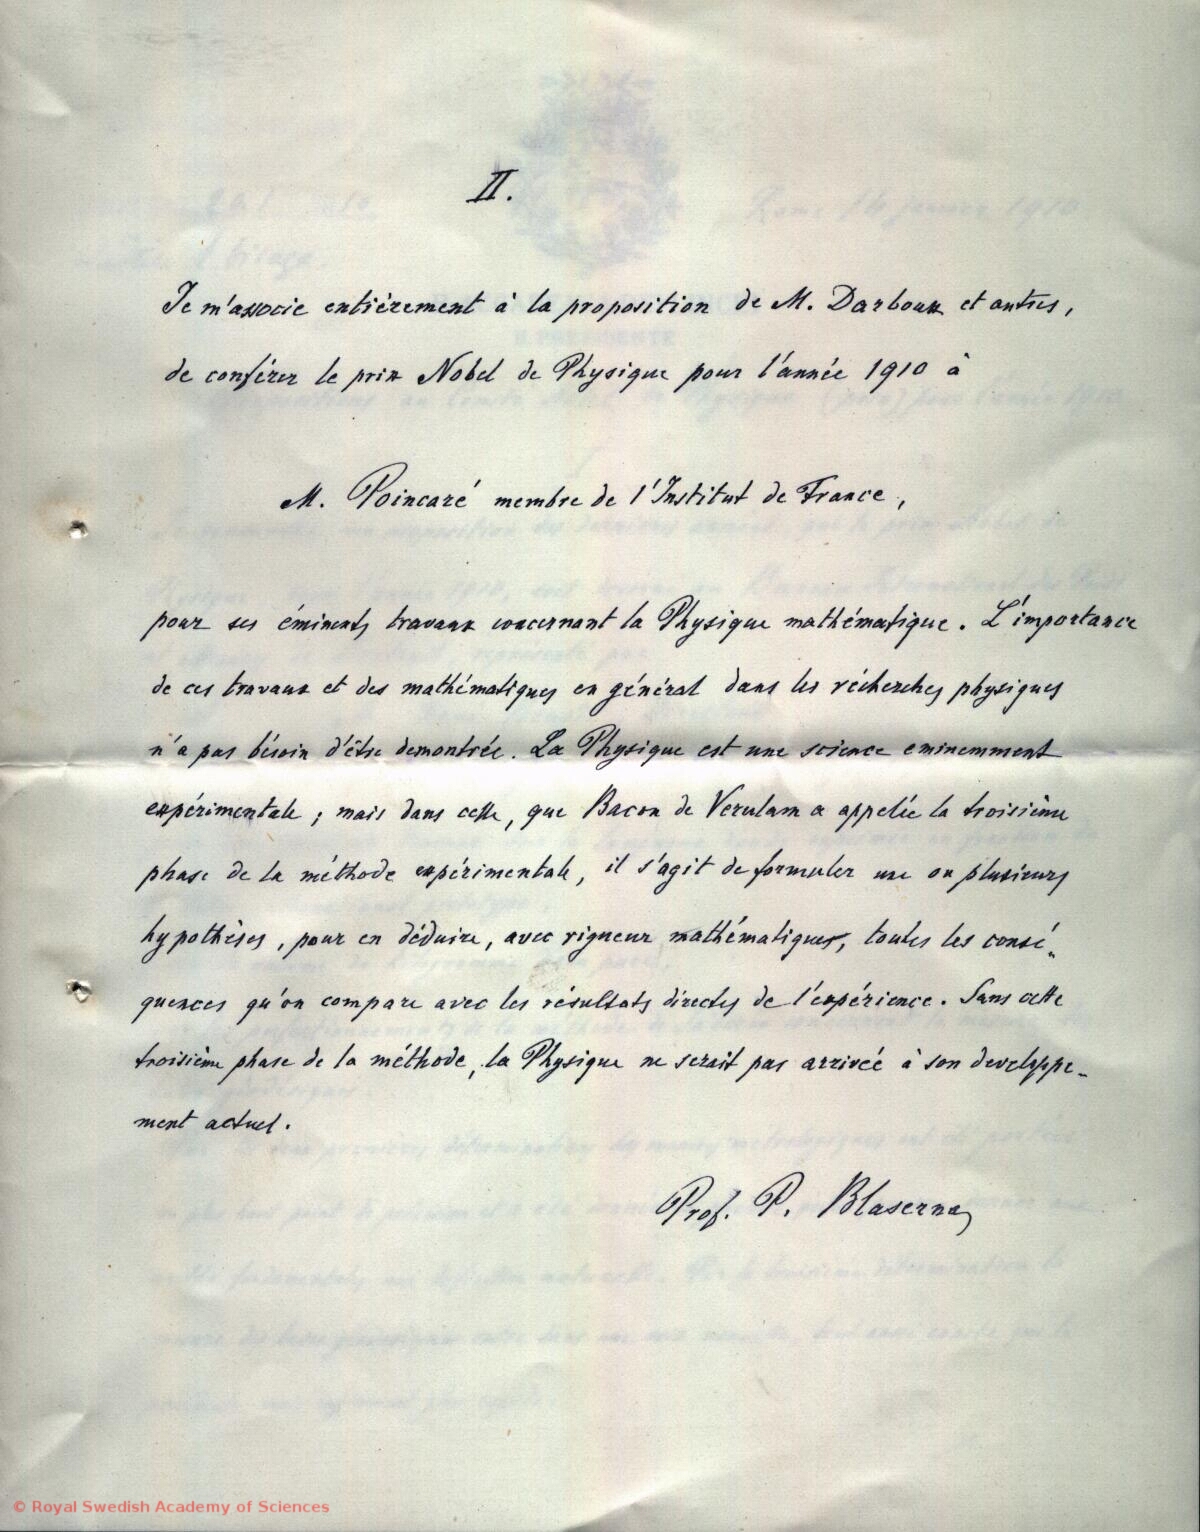 II.
Je m'associe entièrement à la proposition de M. Darboux et autres,
de conférer le prix Nobel de Physique pour l'année 1910 à
M. Poincaré membre de l'Institut de France,
pour ses éminents travaux concernant la Physique mathématique. L'importance
de ces travaux et des mathématiques en général dans les récherches physiques
n'a pas bésoin d'être demontrée. La Physique est une science eminemment
expérimentale ; mais dans celle, que Bacon de Verulam a appelée la troisième
phase de la méthode expérimentale, il s'agit de formuler une ou plusieurs
hypothèses, pour en déduire, avec rigueur mathématique, toutes les consé-
quences qu'on compare avec les résultats directes de l'expérience. Sans cette
troisième phase de la méthode, la Physique ne serait pas arrivée à son developpe-
ment actuel.
Prof. P. Blaserna
Rome 14 janvier 1910
IL PRESIDENTE
© Royal Swedish Academy of Sciences